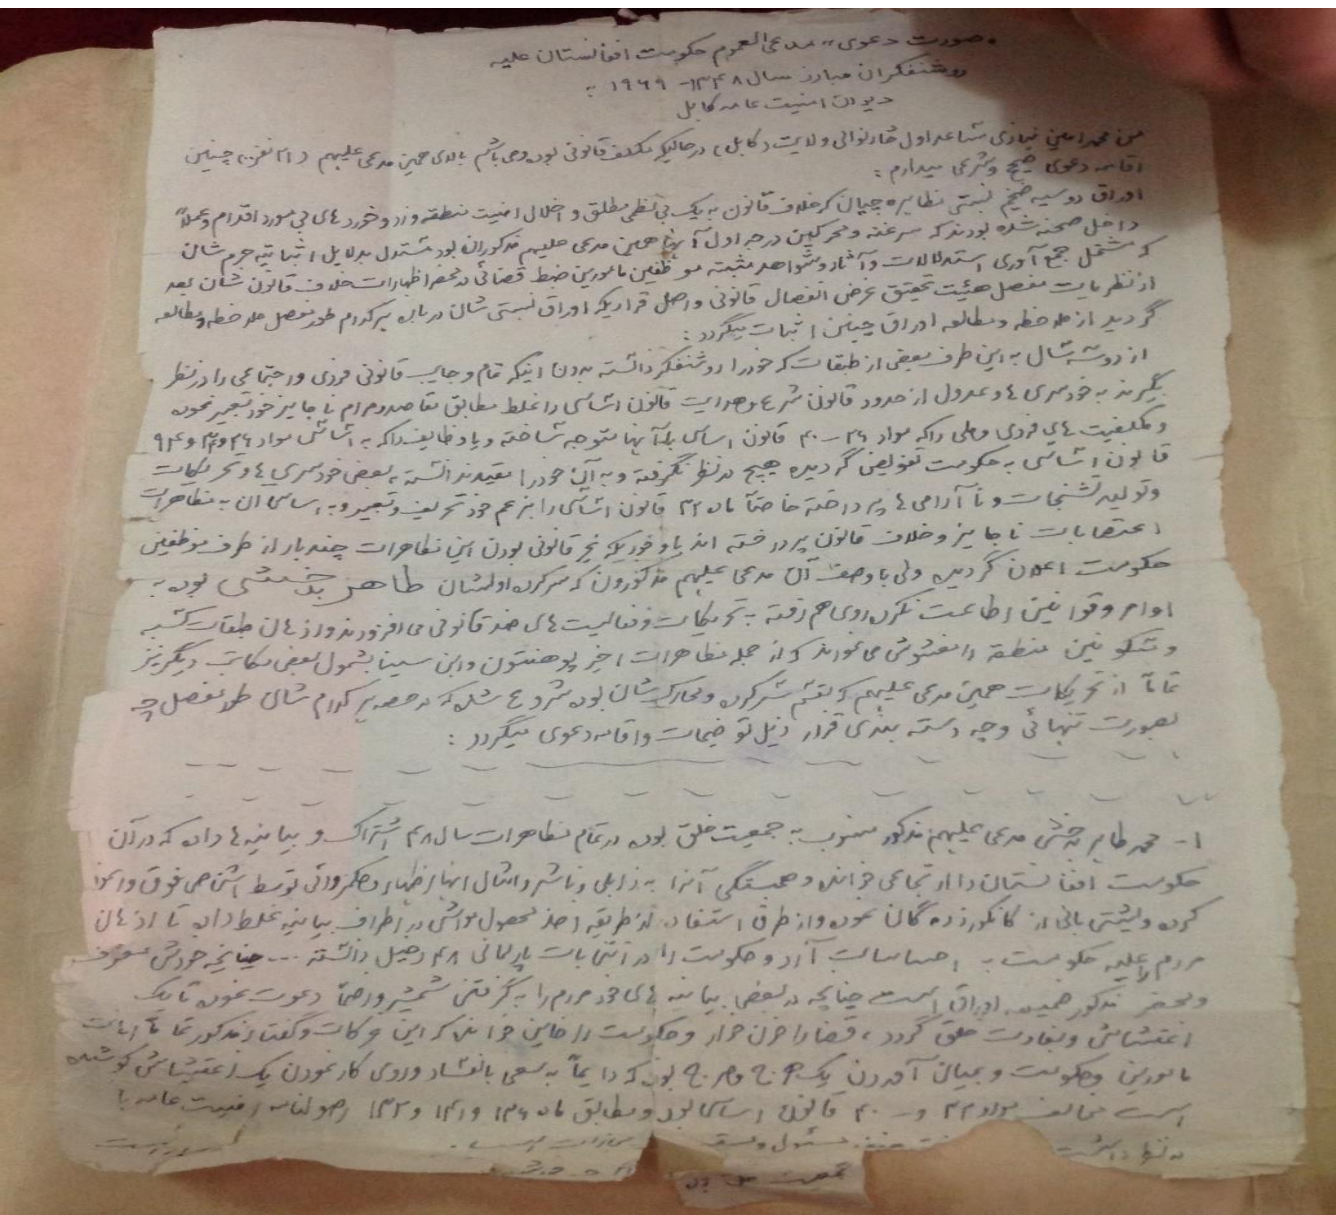 "صورت دعوی" مدعی العموم حکومت افغانستان علیه
روشنفکران مبارز سال ۱۳۴۸ - ۱۹۶۹ به
دیوان امنیت عامه کابل
من محمد امین نیازی مساعد اول څارنوالی ولایت کابل، در حالیکه مکلف قانونی بوده و می باشم بالای همین مدعی علیهم (۲۱ نفر) به چنین
اقامه دعوی صحیح و شرعی میدارم :
اوراق دوسیه ضخیم نسبتی تظاهره چیان که خلاف قانون به یک بی نظمی مطلق و اخلال امنیت منطقه و زد و خورد های بی مورد اقدام و عملاً
داخل صحنه شده بودند که سرغنه و محرکین درجه اول آنها همین مدعی علیهم مذکوران بود مستدل بدلایل اثباتیه جرم شان
که مشتمل جمع آوری استدلالات و آثار و شواهد مثبته موظفین مامورین ضبط قضائی در محضر اظهارات خلاف قانون شان بعد
از نظریات مفصل هیئت تحقیق غرض انفصال قانونی واصل قرار یکه اوراق نسبتی شان درباره هر کدام طور مفصل ملاحظه و مطالعه
گردید از ملاحظه و مطالعه اوراق چنین اثبات میگردد :
از دو سه سال به این طرف بعضی از طبقات که خود را روشنفکر دانسته بدون اینکه تمام وجایب قانونی فردی و اجتماعی را در نظر
بگیرند به خودسری ها و عدول از حدود قانون شرع و هدایت قانون اساسی را غلط مطابق مقاصد و مرام ناجایز خود تعبیر نموده
و مکلفیت های فردی و ملی را که مواد ۲۶ - ۴۰ قانون اساسی بالای آنها متوجه ساخته و یا وظایف را که به اساس مواد
قانون اساسی به حکومت تفویض گردیده هیچ در نظر نگرفته و به آن خود را مقید ندانسته به بعضی خودسری ها و تحریکات
و تولید تشنجات و نا آرامی ها پرداخته خاصتاً ماده قانون اساسی را بزعم خود تحریف و تعبیر و به اساس آن به تظاهرات
اعتصابات ناجایز و خلاف قانون پرداخته اند با وجودیکه غیر قانونی بودن این تظاهرات چند بار از طرف موظفین
حکومت اعلان گردیده ولی با وصف آن مدعی علیهم مذکورون که سرکرده اولشان طاهر بدخشی بوده به
اوامر و قوانین اطاعت نکرده روی هم رفته به تحریکات و فعالیت های ضد قانونی می افزودند و اذهان طبقات کسبه
و متوطنین منطقه را مغشوش می نمودند که از جمله تظاهرات اخیر پوهنتون و ابن سینا بشمول بعضی مکاتب دیگر نیز
تماماً از تحریکات همین مدعی علیهم که نقشه کرده و محرک شان بوده شروع شده که در حصه هر کدام شان طور مفصل چه
بصورت تنهائی و چه دسته بندی قرار ذیل توضیحات و اقامه دعوی میگردد :
۱- محمد طاهر بدخشی مدعی علیهم مذکور منسوب به جمعیت خلق بوده در تمام تظاهرات سال ۴۸ اشتراک و بیانیه ها داده که در آن
حکومت افغانستان را ارتجاعی خوانده و همبستگی آنرا به زابلی و ناشر و امثال آنها اظهار و حکمروائی توسط اشخاص فوق وانمود
کرده و پشتی بانی از کانکور زده گان نموده و از طرق استفاده از طریق اخذ محصول مواشی در اطراف بیانیه غلط داده تا اذهان
مردم را علیه حکومت به احساسات آرد و حکومت را در انتخابات پارلمانی ۴۸ دخیل دانسته ... چنانچه خودش معترف
و محضر مذکور ضمیمه اوراق است چنانچه در بعضی بیانیه های خود مردم را به گرفتن شمشیر و رضاً دعوت نموده تا یک
اغتشاش و بغاوت خلق گردد، قضا را خون خوار و حکومت را خاین خوانده که این حرکات و گفتار مذکور تماماً اهانت
مامورین و حکومت و بمیان آوردن یک هرج و مرج بوده که دایماً به سعی بالفساد و روی کار نمودن یک اغتشاش کوشیده
است مخالف مواد و ۴۰ قانون اساسی بوده و مطابق ماده ۱۲۶ و ۱۳۱ و ۱۳۲ اصولنامه امنیت عامه با